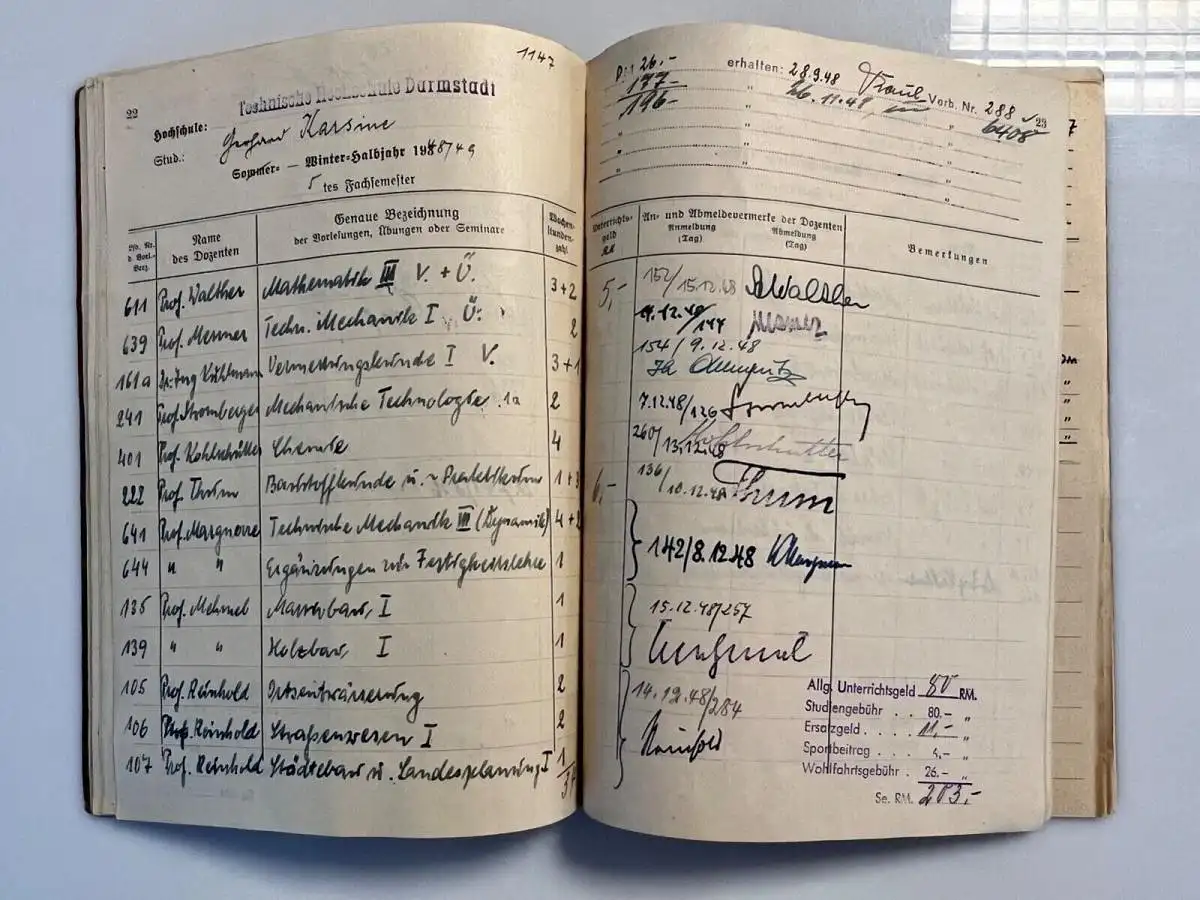 1147
22
Technische Hochschule Darmstadt
Hochschule:
Stud.: Gerhard
Sommer- — Winter-Halbjahr 1948/49
5 tes Fachsemester
Lfd. Nr. d. Vorl.-Verz.
Name des Dozenten
Genaue Bezeichnung der Vorlesungen, Übungen oder Seminare
Wochenstundenzahl
611 Prof. Walther Mathematik III V. + Ü. 3+2
639 Prof. Techn. Mechanik I Ü. 2
161a Dr. Ing. Kuhlmann Vermessungskunde I V. 3+1
241 Prof. Stromberger Mechanische Technologie 1a 2
401 Prof. Kohlschütter Chemie 4
222 Prof. Thum Baustoffkunde u. - Praktikum 1+3
641 Prof. Marguerre Technische Mechanik III (Dynamik) 4+2
644 " " Ergänzungen zur Festigkeitslehre 1
135 Prof. Mehmel Massivbau I 1
139 " " Holzbau I 1
105 Prof. Reinhold Ortsentwässerung 2
106 Prof. Reinhold Straßenwesen I 2
107 Prof. Reinhold Städtebau u. Landesplanung I 1
26.- erhalten: 28.9.48 Vorb. Nr. 288
177.- " 26.11.48 " 6408
196.-
23
Unterrichtsgeld RM
An- und Abmeldevermerke der Dozenten
Anmeldung (Tag)
Abmeldung (Tag)
Bemerkungen
5,- 152/15.12.48 Walther
9.12.48/144
154/9.12.48
7.12.48/126 Stromberger
260/13.12.48 Kohlschütter
6,- 136/10.12.48 Thum
142/8.12.48 Marguerre
15.12.48/257
Mehmel
14.12.48/284
Reinhold
Allg. Unterrichtsgeld 80 RM.
Studiengebühr . . 80.- "
Ersatzgeld . . . . 11,- "
Sportbeitrag . . . 4.- "
Wohlfahrtsgebühr . 26.- "
Se. RM. 203.-